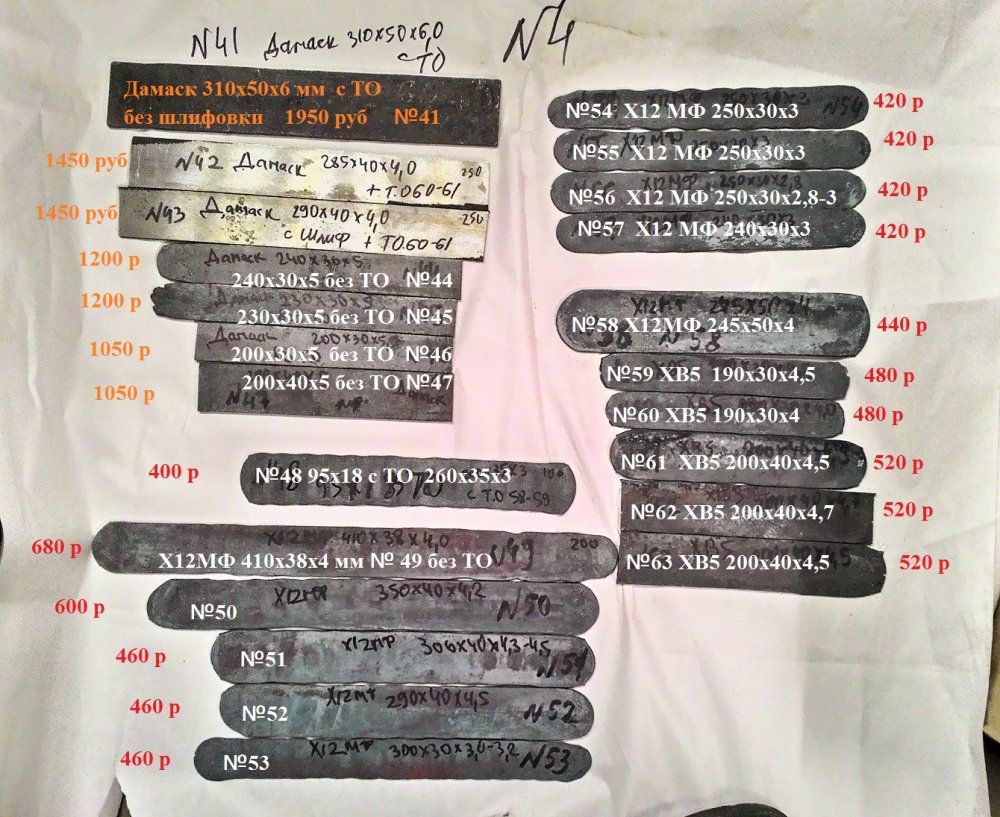 N41 Дамаск 310x50x6,0
с ТО
N4
Дамаск 310х50х6 мм с ТО
без шлифовки 1950 руб №41
1450 руб
N42 Дамаск 285x40x4,0 250
+ Т.О 60-61
1450 руб
N43 Дамаск 290x40x4,0 250
с Шлиф + ТО.60-61
1200 р
Дамаск 240x30x5
240х30х5 без ТО №44
1200 р
Дамаск 230x30x5
230х30х5 без ТО №45
1050 р
Дамаск 200x30x5
200х30х5 без ТО №46
1050 р
200х40х5 без ТО №47
N47 Дамаск
400 р
№48 95х18 с ТО 260х35х3
с Т.О 58-59
680 р
Х12МФ 410x38x4,0 N49 200
Х12МФ 410х38х4 мм № 49 без ТО
600 р
№50 Х12МФ 350x40x4,2 N50
460 р
№51 Х12МФ 300x40x4,3-4,5 N51
460 р
№52 Х12МФ 290x40x4,5 N52
460 р
№53 Х12МФ 300x30x3,0-3,2 N53
№54 Х12 МФ 250х30х3 N54 420 р
№55 Х12 МФ 250х30х3 420 р
№56 Х12 МФ 250х30х2,8-3 420 р
№57 Х12 МФ 240х30х3 420 р
Х12МФ 245x50x4
№58 Х12МФ 245х50х4 440 р
N58
№59 ХВ5 190х30х4,5 480 р
№60 ХВ5 190х30х4 480 р
№61 ХВ5 200х40х4,5 520 р
№62 ХВ5 200х40х4,7 520 р
№63 ХВ5 200х40х4,5 520 р